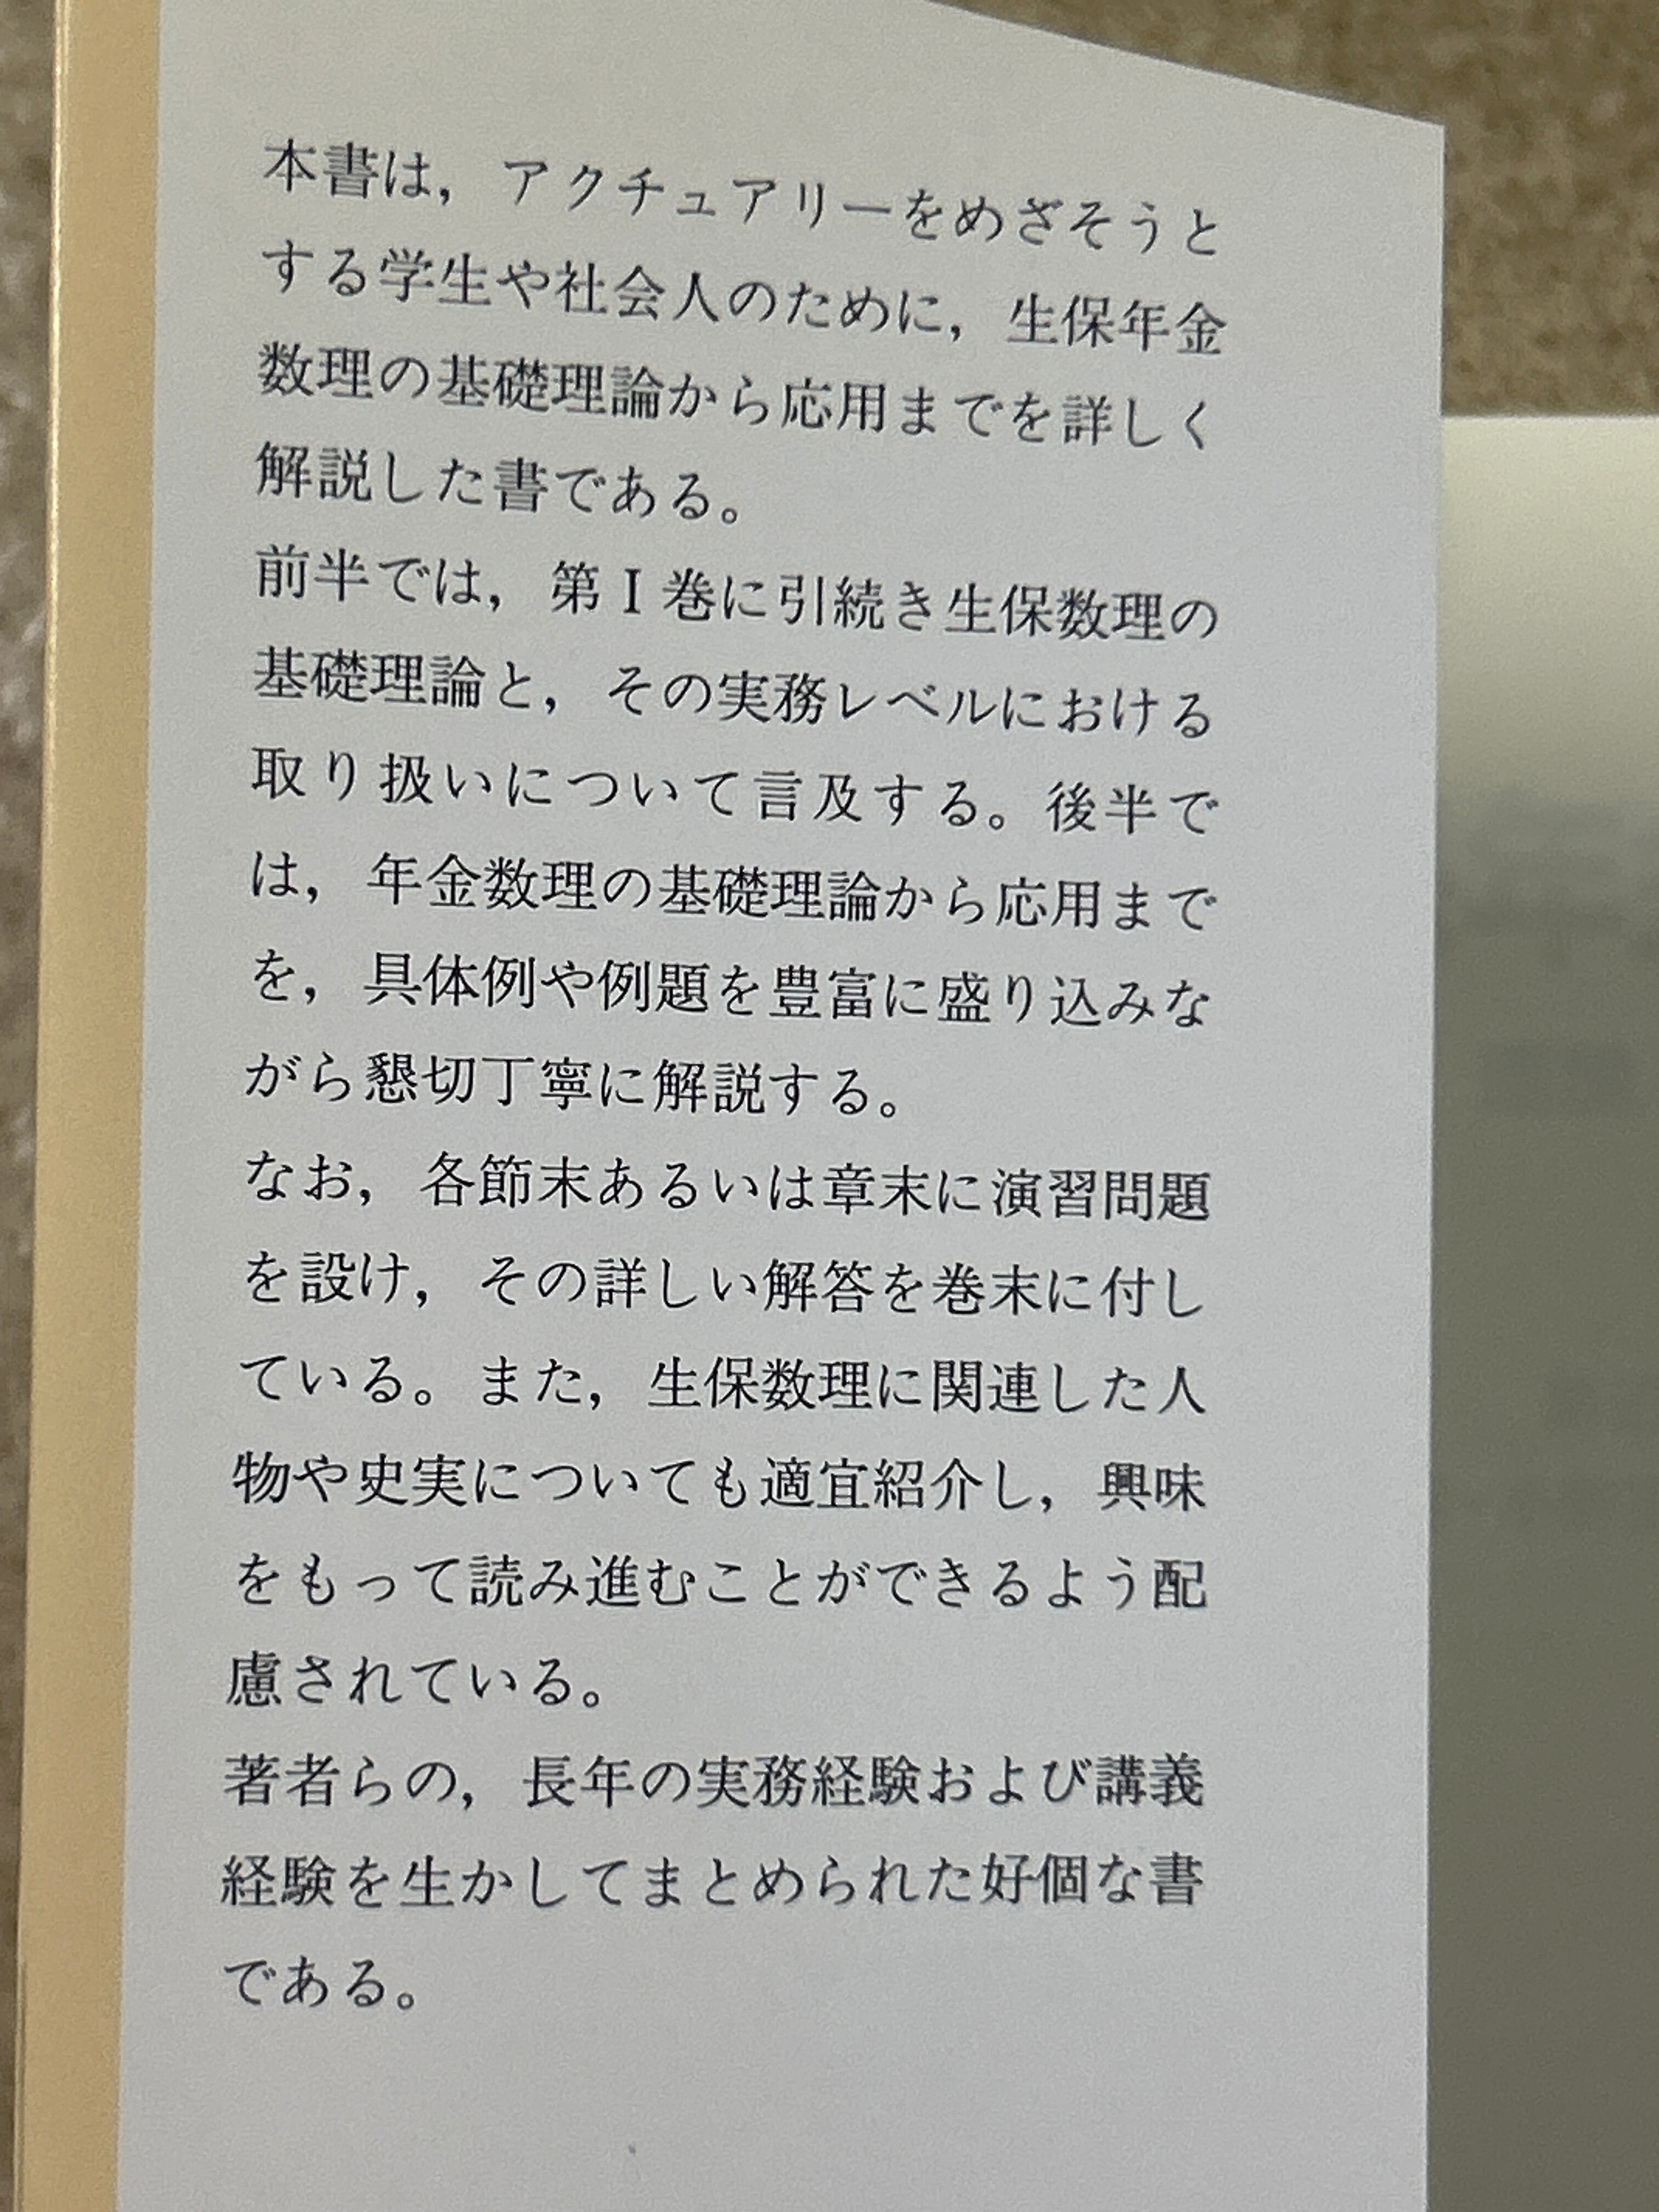 本書は，アクチュアリーをめざそうと
する学生や社会人のために，生保年金
数理の基礎理論から応用までを詳しく
解説した書である。
前半では，第Ⅰ巻に引続き生保数理の
基礎理論と，その実務レベルにおける
取り扱いについて言及する。後半で
は，年金数理の基礎理論から応用まで
を，具体例や例題を豊富に盛り込みな
がら懇切丁寧に解説する。
なお，各節末あるいは章末に演習問題
を設け，その詳しい解答を巻末に付し
ている。また，生保数理に関連した人
物や史実についても適宜紹介し，興味
をもって読み進むことができるよう配
慮されている。
著者らの，長年の実務経験および講義
経験を生かしてまとめられた好個な書
である。